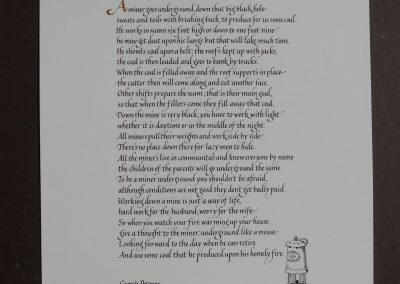 A miner goes underground, down that big black hole
sweats and toils with breaking back, to produce for us some coal.
He works in seams six foot high or down to one foot nine
he may get dust upon his lungs but that will take much time.
He shovels coal upon a belt; the roof's kept up with jacks,
the coal is then loaded and goes to bank by tracks.
When the coal is filled away and the roof supports in place
the cutter then will come along and cut another face.
Other shifts prepare the seam; that is their main goal,
so that when the fillers come they fill away that coal.
Down the mine is very black, you have to work with light
whether it is daytime or in the middle of the night.
All miners pull their weights and work side by side
There's no place down there for lazy men to hide.
All the miners live in communities and know everyone by name
the children of the parents will go underground the same
To be a miner underground you shouldn't be afraid,
although conditions are not good they don't get badly paid.
Working down a mine is just a way of life,
hard work for the husband, worry for the wife.
So when you watch your fire warming up your house
Give a thought to the miner; underground like a mouse
Looking forward to the day when he can retire
And use some coal that he produced upon his homely fire.